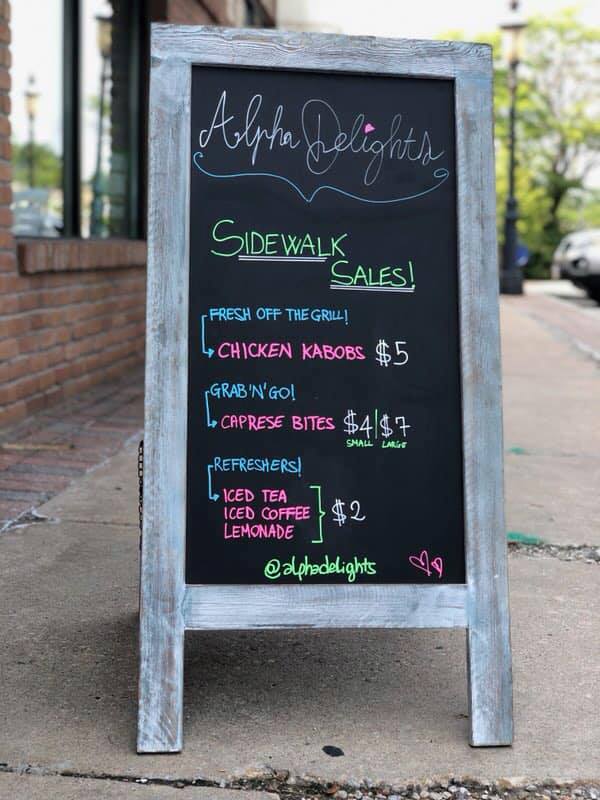 Alpha Delights
SIDEWALK
SALES!
FRESH OFF THE GRILL!
CHICKEN KABOBS $5
GRAB'N'GO!
CAPRESE BITES $4|$7
SMALL LARGE
REFRESHERS!
ICED TEA
ICED COFFEE $2
LEMONADE
@alphadelights